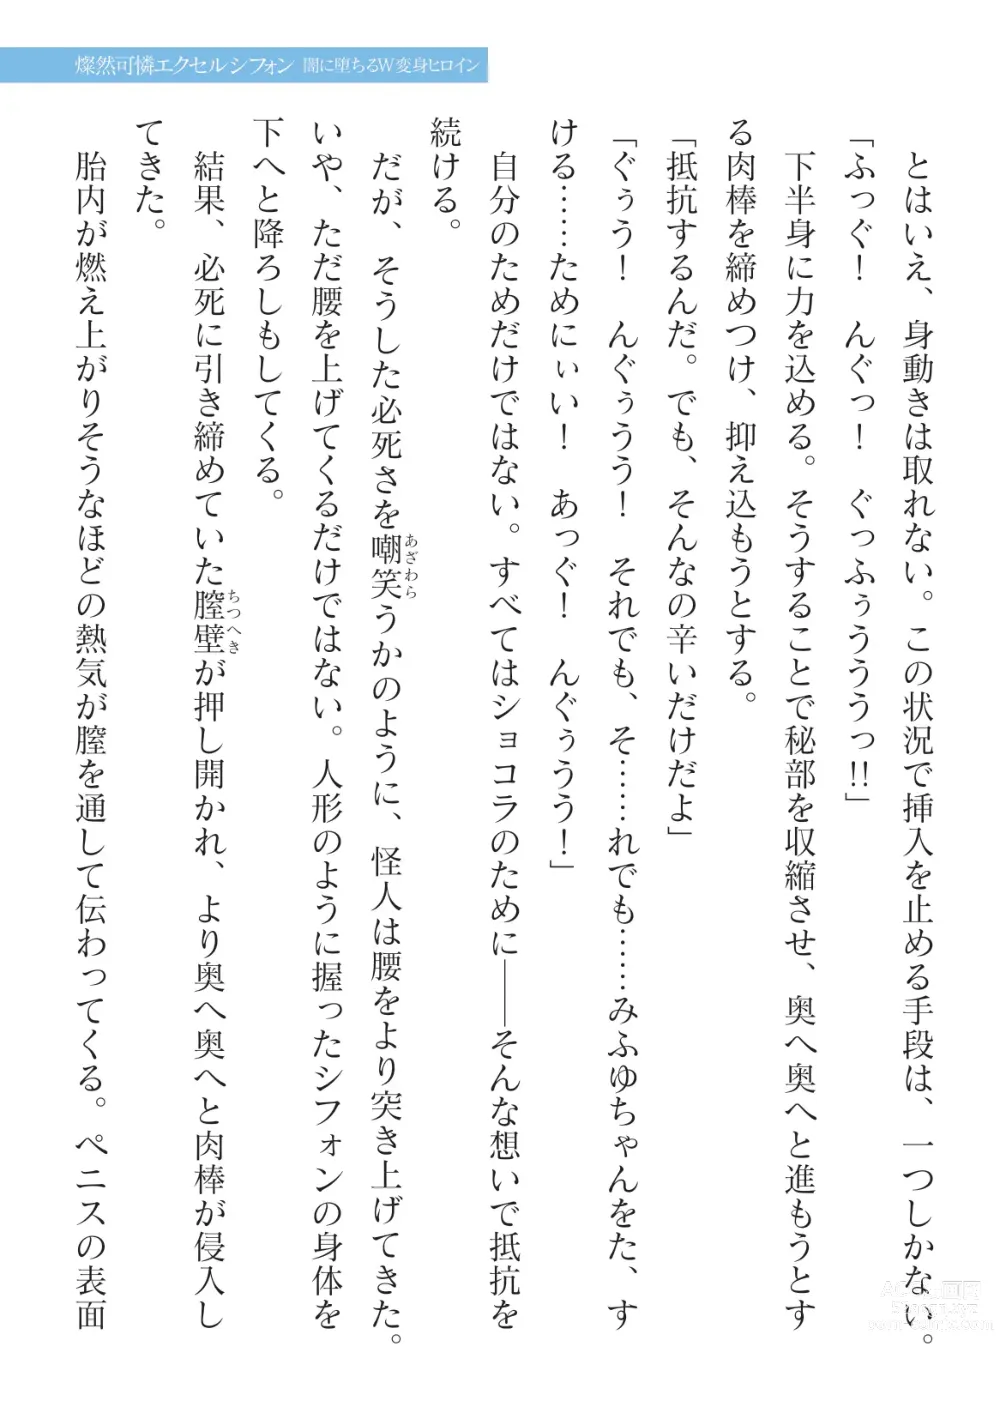 燦然可憐エクセルシフォン 闇に堕ちるW変身ヒロイン
とはいえ、身動きは取れない。この状況で挿入を止める手段は、一つしかない。
「ふっぐ！　んぐっ！　ぐっふぅうううっ!!」
下半身に力を込める。そうすることで秘部を収縮させ、奥へ奥へと進もうとす
る肉棒を締めつけ、抑え込もうとする。
「抵抗するんだ。でも、そんなの辛いだけだよ」
「ぐぅう！　んぐぅうう！　それでも、そ……れでも……みふゆちゃんをた、す
ける……ためにぃい！　あっぐ！　んぐぅうう！」
自分のためだけではない。すべてはショコラのために――そんな想いで抵抗を
続ける。
だが、そうした必死さを嘲笑うかのように、怪人は腰をより突き上げてきた。
あざわら
いや、ただ腰を上げてくるだけではない。人形のように握ったシフォンの身体を
下へと降ろしもしてくる。
結果、必死に引き締めていた膣壁が押し開かれ、より奥へ奥へと肉棒が侵入し
ちつへき
てきた。
胎内が燃え上がりそうなほどの熱気が膣を通して伝わってくる。ペニスの表面